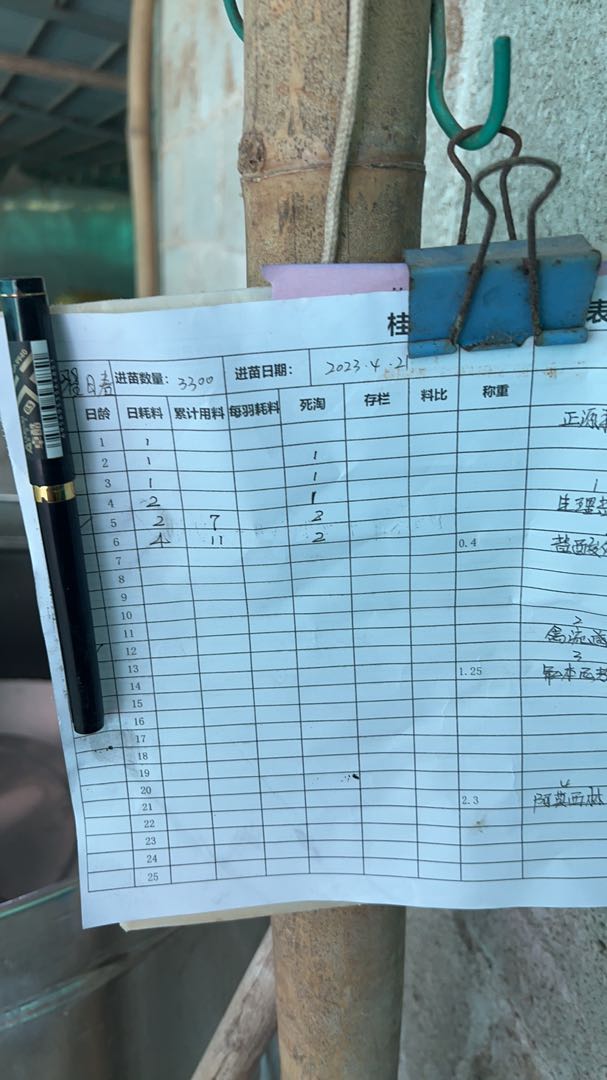 桂 表
进苗数量： 3300 进苗日期： 2023.4.2
日龄 日耗料 累计用料 每羽耗料 死淘 存栏 料比 称重
正源
1 1
2 1 1
3 1 1
1
4 2 1
生理
5 2 7 2
6 4 11 2 0.4
7
8
9
10
2
11
12
3
13 1.25
14
15
16
17
18
19
20
4
21 2.3 阿莫西林
22
23
24
25